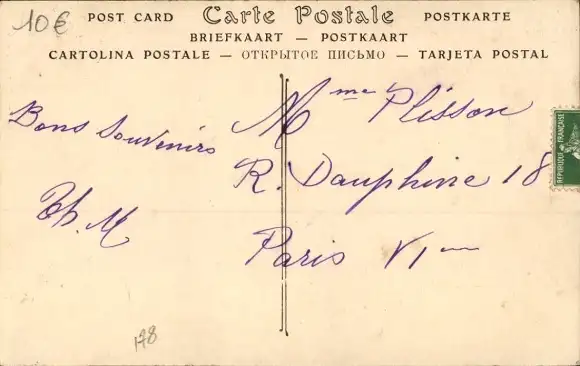 10€
POST CARD Carte Postale POSTKARTE
BRIEFKAART — POSTKAART
CARTOLINA POSTALE — ОТКРЫТОЕ ПИСЬМО — TARJETA POSTAL
Bons Souvenirs
Th. M
Mme Plisson
R. Dauphine 18
Paris VIme
REPUBLIQUE FRANÇAISE
178